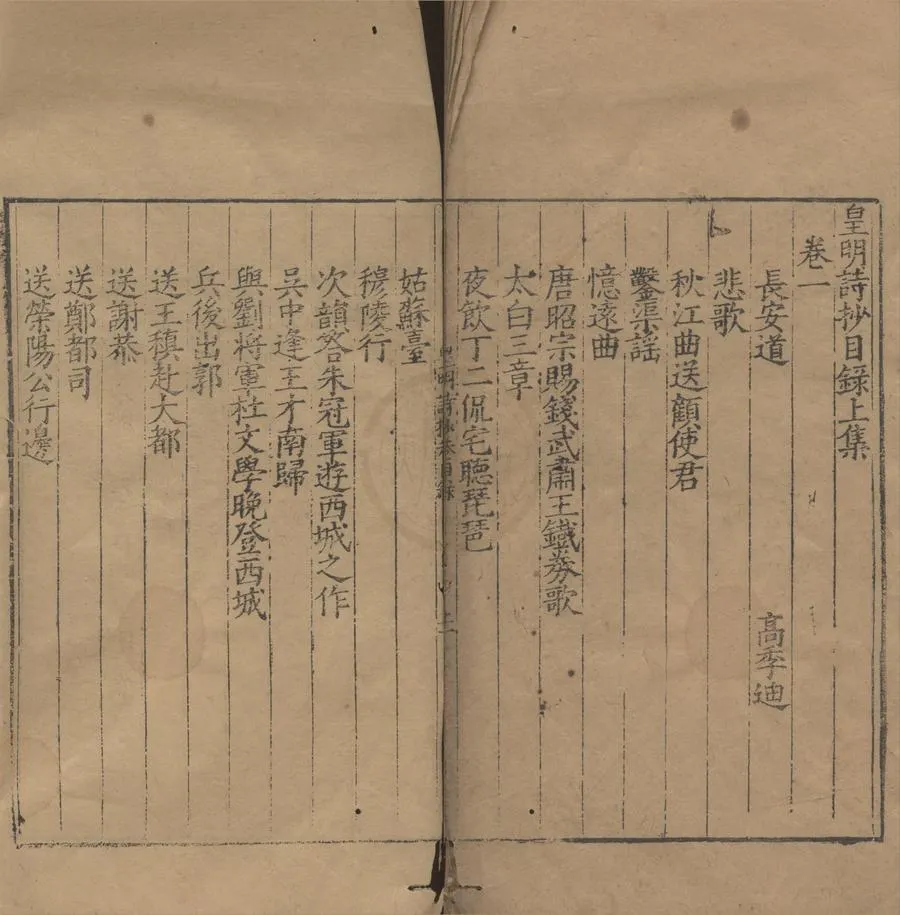 皇明詩抄目錄上集
卷一
長安道 高季迪
悲歌
秋江曲送顧使君
鑿渠謠
憶遠曲
唐昭宗賜錢武肅王鐵券歌
太白三章
夜飲丁二侃宅聽琵琶
皇明詩抄卷目錄
姑蘇臺
穆陵行
次韻答朱冠軍遊西城之作
吳中逢王才南歸
與劉將軍杜文學晚登西城
兵後出郭
送王稹赴大都
送謝恭
送鄭都司
送滎陽公行邊